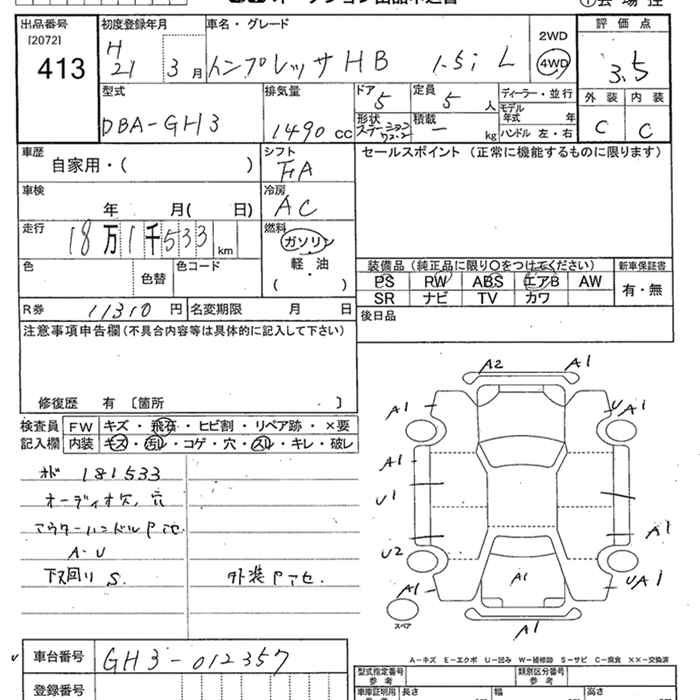 出品番号 初度登録年月 車名・グレード 評価点
[2072] H 2WD
413 21 3月 インプレッサHB 1.5i L 4WD 3.5
型式 排気量 ドア 定員 ディーラー・並行 外装 内装
5 5人 モデル年式 年
DBA-GH3 1490cc 形状 積載 C C
ステーションワゴン ー kg ハンドル 左・右
車歴 シフト セールスポイント (正常に機能するものに限ります)
自家用・( ) FA
車検 冷房
年 月( 日) AC
走行 燃料
18万1千533km ガソリン
色 色替 色コード 軽・油 装備品(純正品に限り○をつけてください) 新車保証書
( ) PS RW ABS エアB AW 有・無
SR ナビ TV カワ
R券 11310円 名変期限 月 日 後日品
注意事項申告欄(不具合内容等は具体的に記入して下さい)
修復歴 有 〔箇所 〕
検査員 FW キズ・飛石・ヒビ割・リペア跡・×要
記入欄 内装 キズ・汚レ・コゲ・穴・スレ・キレ・破レ
A2 A1
A1 UA1
A1
U1
A1
U2
A1 A1 UA1
A1
スペア
オド 181533
オーディオ欠、穴
アウターハンドルPアセ
A・U
下回りS. 外装Pアセ.
A-キズ E-エクボ U-凹み W-補修跡 S-サビ C-腐食 ××-交換済
車台番号 GH3-012357
型式指定番号 類別区分番号
参考 参考
登録番号 車庫証明用 長さ 幅 高さ